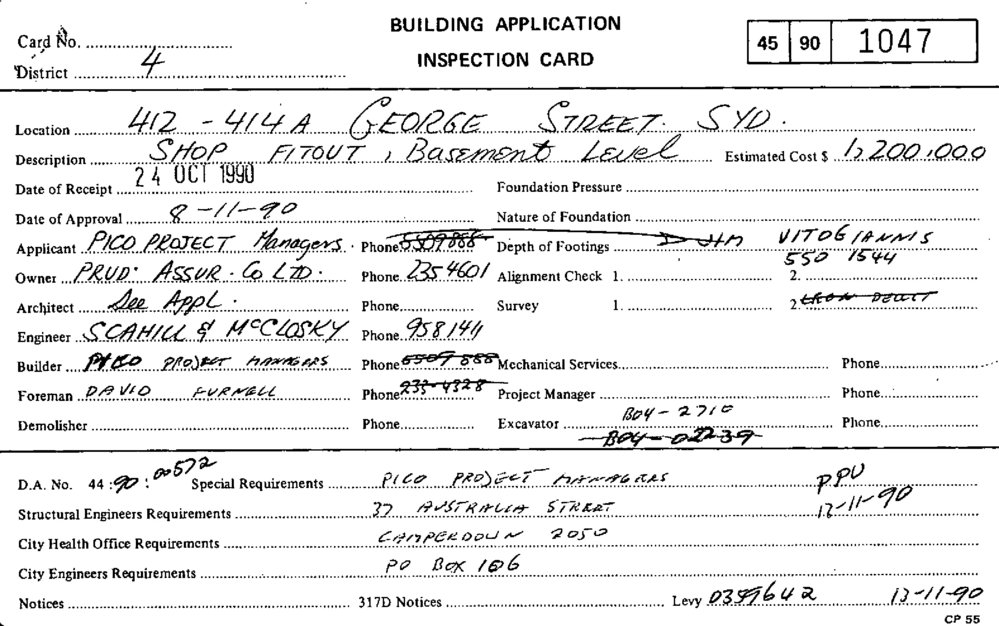 BUILDING APPLICATION
INSPECTION CARD
Card No.
District 4
45 90 1047
Location 412 - 414A GEORGE STREET. SYD.
Description SHOP FITOUT, Basement Level Estimated Cost $ 1,200,000
Date of Receipt 24 OCT 1990 Foundation Pressure
Date of Approval 8-11-90 Nature of Foundation
Applicant PICO PROJECT Managers. Phone 5509866 Depth of Footings JIM VITOGIANNIS
550 1544
Owner PRUD. ASSUR. Co LTD. Phone 2354601 Alignment Check 1. 2.
Architect See Appl. Phone Survey 1. 2
Engineer SCAHILL & McCLOSKY Phone 958144
Builder PICO PROJECT MANAGERS Phone 5507 888 Mechanical Services Phone
Foreman DAVID FURNELL Phone 233-4328 Project Manager Phone
Demolisher Phone Excavator B04-2710 Phone
B04-02239
D.A. No. 44:90:00572 Special Requirements PICO PROJECT MANAGERS PPU
Structural Engineers Requirements 37 AUSTRALIA STREET 12-11-90
City Health Office Requirements CAMPERDOWN 2050
City Engineers Requirements PO Box 106
Notices 317D Notices Levy 0359642 13-11-90
CP 55